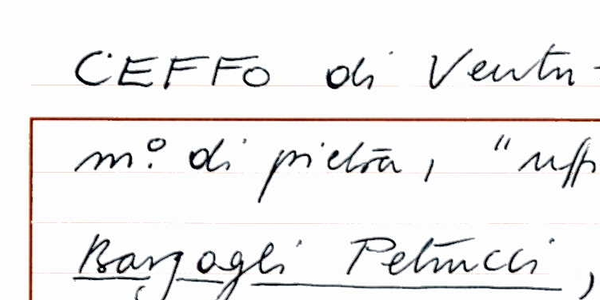 CEFFO di Ventu-
m.° di pietra, "uffi
Bargagli Petrucci,